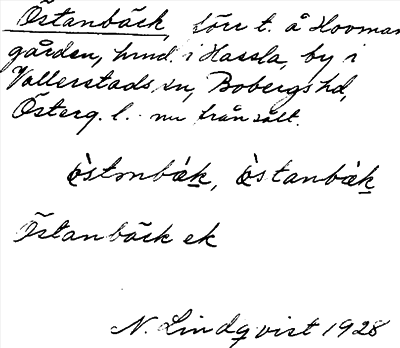 Östanbäck, förr t. å Hovman
gården, hmd. i Hassla, by i
Vallerstads sn, Bobergs hd,
Österg. l. nu frånsålt.
Östanbäck ek
N. Lindqvist 1928